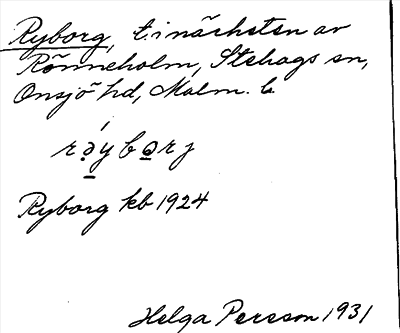 Ryborg, t. i närheten av
Rönneholm, Stehags sn,
Onsjö hd, Malm. l.
Ryborg kb 1924
Helga Persson 1931